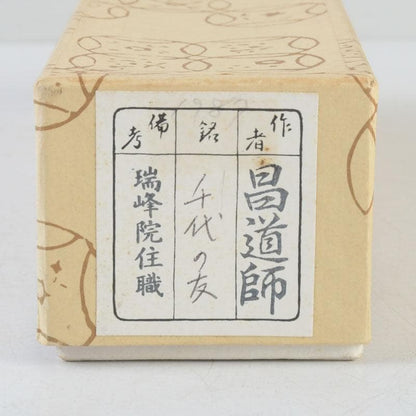 作者
昌道師
銘
千代の友
備考
瑞峰院住職